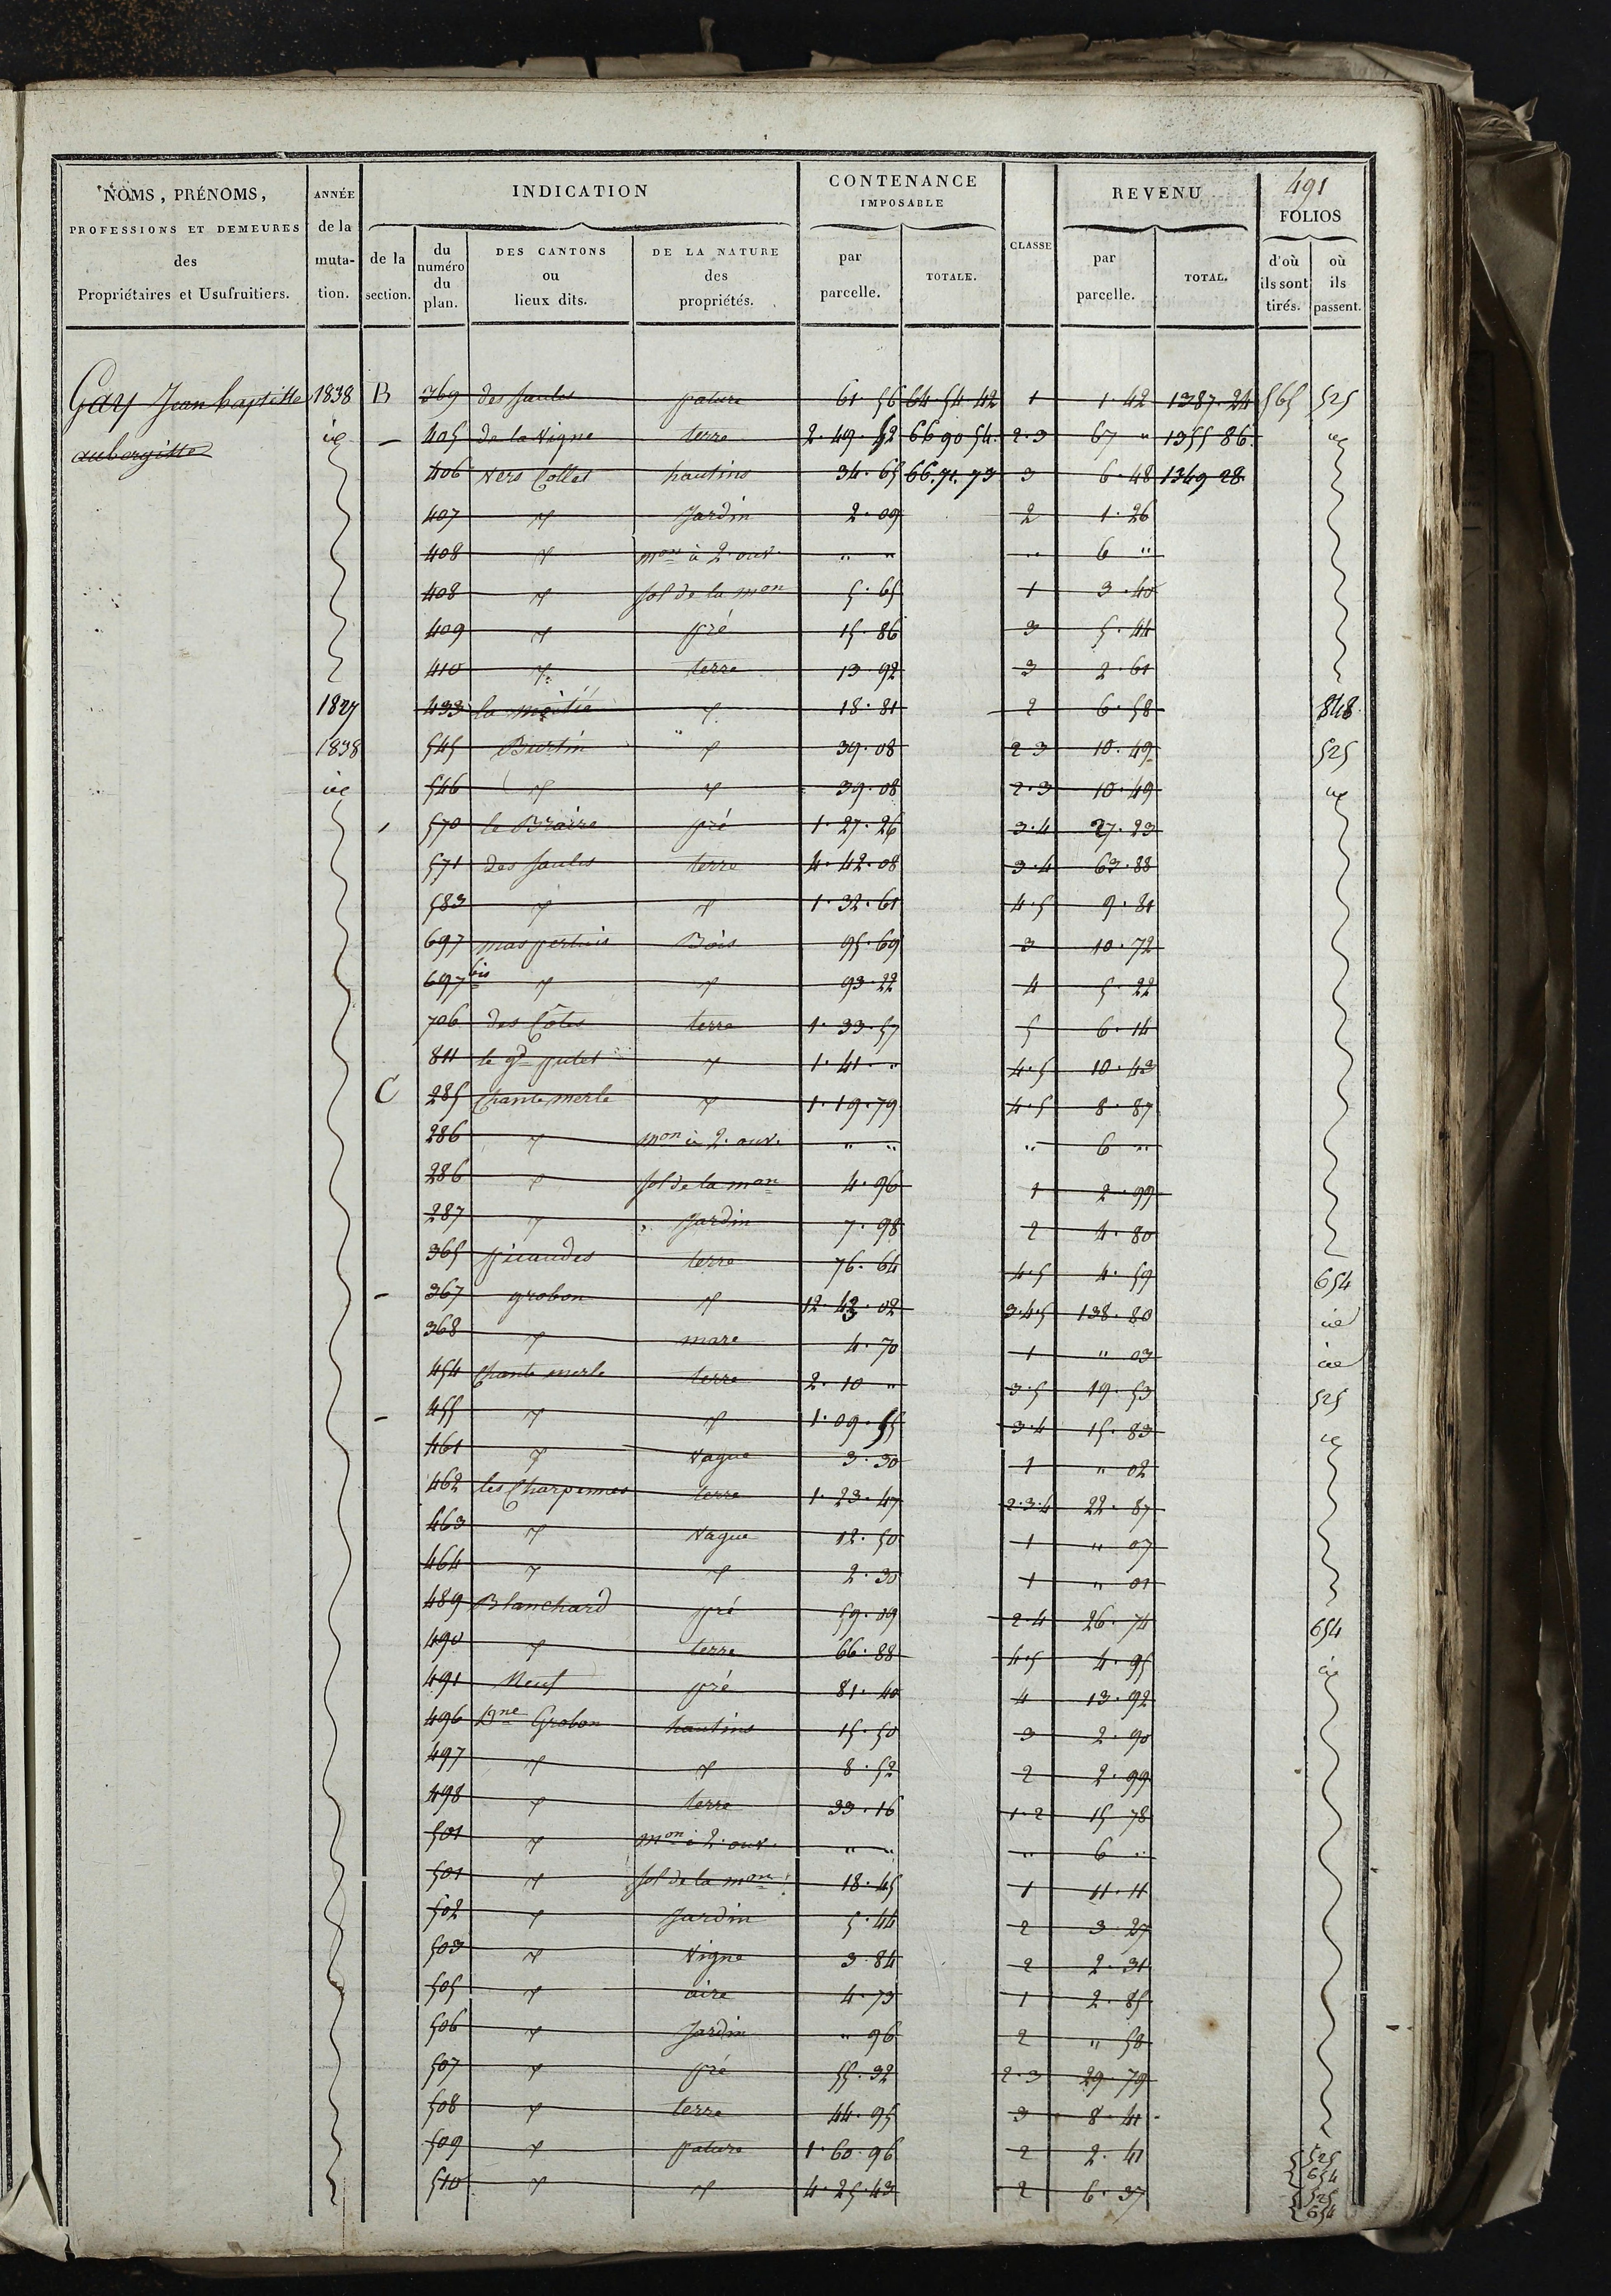 491
NOMS, PRÉNOMS, PROFESSIONS ET DEMEURES des Propriétaires et Usufruitiers. ANNÉE de la muta-tion. INDICATION de la section. du numéro du plan. DES CANTONS ou lieux dits. DE LA NATURE des propriétés. CONTENANCE IMPOSABLE par parcelle. TOTALE. CLASSE REVENU par parcelle. TOTAL. FOLIOS d'où ils sont tirés. où ils passent.
Gay Jean baptiste 1838 B 369 des Saules pature 61.56 64 54.42 1 1.42 1387.24 565 525
aubergiste id – 405 de la Vigne terre 2.49.52 66 90 54. 2.3 67 " 1355 86. id
406 Vers Collet hautins 34.65 66.71.73 3 6.48 1349 28
407 d Jardin 2.09 2 1.26
408 d mon à 2. ouv. " " " 6 "
408 d sol de la mon 5.65 1 3.40
409 d pré 15.86 3 5.44
410 d terre 13.92 3 2.61
1827 433 la moitié d 18.81 2 6.58 848
1838 545 Burtin d 39.08 2 3 10.49 525
id 546 d d 39.08 2.3 10.49 id
570 le Braire pré 1.27.26 3.4 27.23
571 des Saules terre 4.42.08 3.4 63.88
583 d d 1.32.61 4.5 9.81
697 mas pertuis Bois 95.69 3 10.72
697 bis d d 93.22 4 5.22
706 des Côtes terre 1.33.57 5 6.14
811 le gd d 1.41. " 4.5 10.43
C 285 Chantemerle d 1.19.79 4.5 8.87
286 d mon à 2. ouv. " " " 6 "
286 d sol de la mon 4.96 1 2.99
287 d Jardin 7.98 2 4.80
365 picaudes terre 76.64 4.5 4.59 654
– 367 grobon d 12.43.02 3.4.5 138.80 id
368 d mare 4.70 1 " 03 id
454 Chante merle terre 2.10 " 3.5 19.53 525
– 455 d d 1.09.55 3.4 15.83 id
461 d Vague 3.30 1 " 02
462 les Charpennes terre 1.23.47 2.3.4 22.87
463 d Vague 12.50 1 " 07
464 d d 2.30 1 " 01
489 Blanchard pré 59.09 2.4 26.74 654
490 d terre 66.88 4.5 4.95 id
491 Neuf pré 81.40 4 13.92
496 Dne Grobon hautins 15.50 3 2.90
497 d d 8.52 2 2.99
498 d terre 33.16 1.2 15 78
501 d mon à 2. ouv. " " " 6 "
501 d sol de la mon 18.45 1 11.11
502 d Jardin 5.44 2 3 27
503 d Vigne 3.84 2 2.31
505 d aire 4.73 1 2.85
506 d Jardin " 96 2 " 58
507 d pré 55.32 2.3 29.79
508 d terre 44.95 3 8.41
509 d pature 1.60.96 2 2.41 525 654
510 d d 4.25.43 2 6.37 525 654